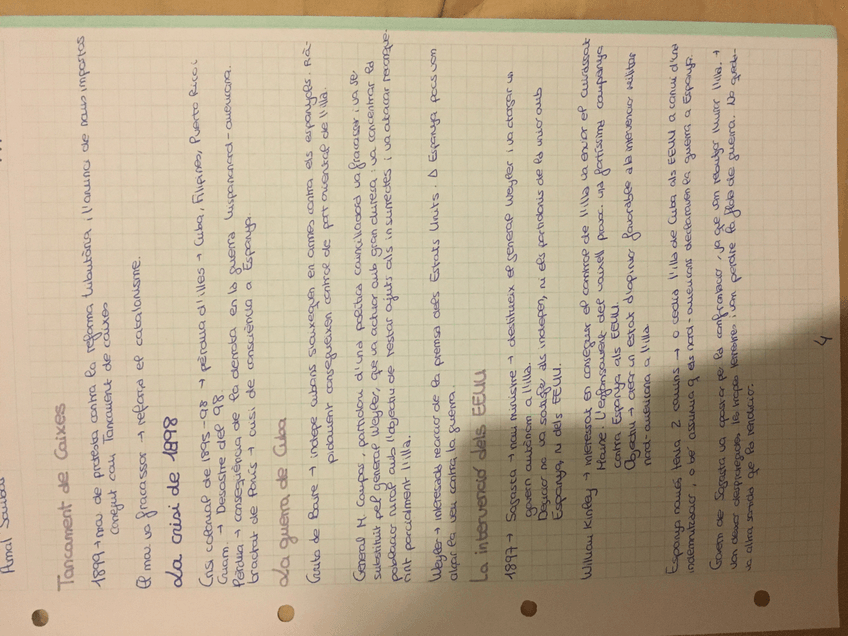 Tancament de Caixes
1899 → mov de protesta contra la reforma tributària i l'anunci de nous impostos
conegut com Tancament de caixes
El mov va fracassar → reforçà el catalanisme.
La crisi de 1898
Crisi colonial de 1895-98 → pèrdua d'illes → Cuba, Filipines, Puerto Rico i
Guam → Desastre del 98.
Pèrdua → conseqüència de la derrota en la guerra hispanonord-americana.
tractat de París → crisi de consciència a Espanya.
La guerra de Cuba
Grito de Baire → indepe cubans s'aixequen en armes contra els espanyols. Rà-
pidament aconsegueixen control de part oriental de l'illa.
General M. Campos, partidari d'una política conciliadora va fracassar i va ser
substituït pel general Weyler, que va actuar amb gran duresa: va concentrar la
població rural amb l'objectiu de restar ajuts als insurrectes i va atacar
rint parcialment l'illa.
Weyler → interessada reacció de la premsa dels Estats Units. A Espanya pocs van
alçar la veu contra la guerra.
La intervenció dels EEUU
1897 → Sagasta → nou ministre → destitueix el general Weyler i va atorgar un
govern autònom a l'illa.
Decisió no va satisfer als indepes, ni els partidaris de la unió amb
Espanya, ni dels EEUU.
William Kinley → interessat en aconseguir el control de l'illa va enviar el cuirassat
Maine. L'enfonsament del vaixell provocà una fortíssima campanya
contra Espanya als EEUU.
Objectiu → crear un estat d'opinió favorable a la intervenció militar
nord-americana a l'illa.
Espanya només tenia 2 camins → o cedia l'illa de Cuba als EEUU a canvi d'una
indemnització, o bé assumia q els nord-americans declararien la guerra a Espanya.
Govern de Sagasta va apostar per la confrontació, ja que van rebutjar l'illa. →
van desaparegudes les tropes terrestres i van perdre la flota de guerra. No queda-
va altra sortida que la rendició.
4